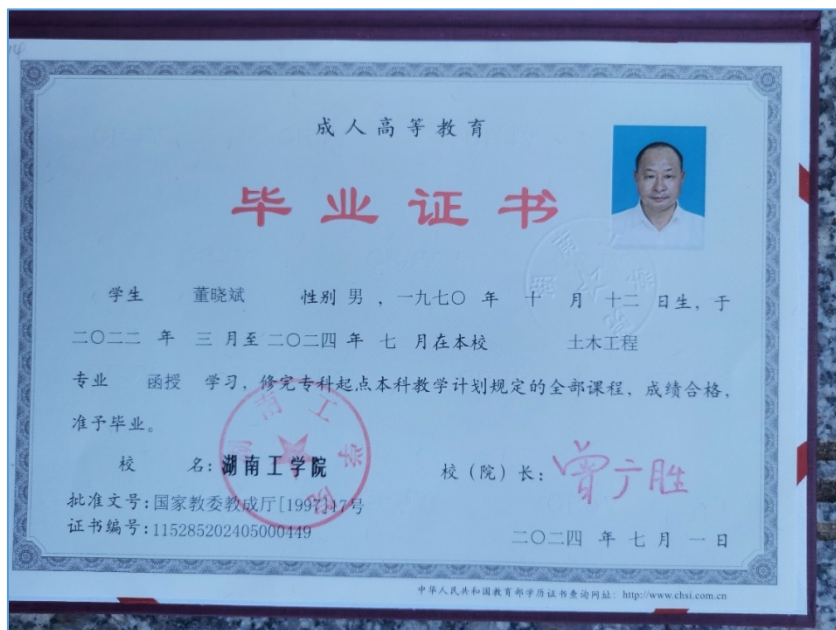 成人高等教育
毕业证书
学生 董晓斌 性别 男 ，一九七〇 年 十 月 十二 日生，于
二〇二二 年 三 月至 二〇二四 年 七 月在本校 土木工程
专业 函授 学习，修完专科起点本科教学计划规定的全部课程，成绩合格，
准予毕业。
校 名：湖南工学院
校（院）长：曾广胜
批准文号：国家教委教成厅[1997]17号
证书编号：115285202405000449
二〇二四 年 七 月 一 日
中华人民共和国教育部学历证书查询网址：http://www.chsi.com.cn
湖南工学院